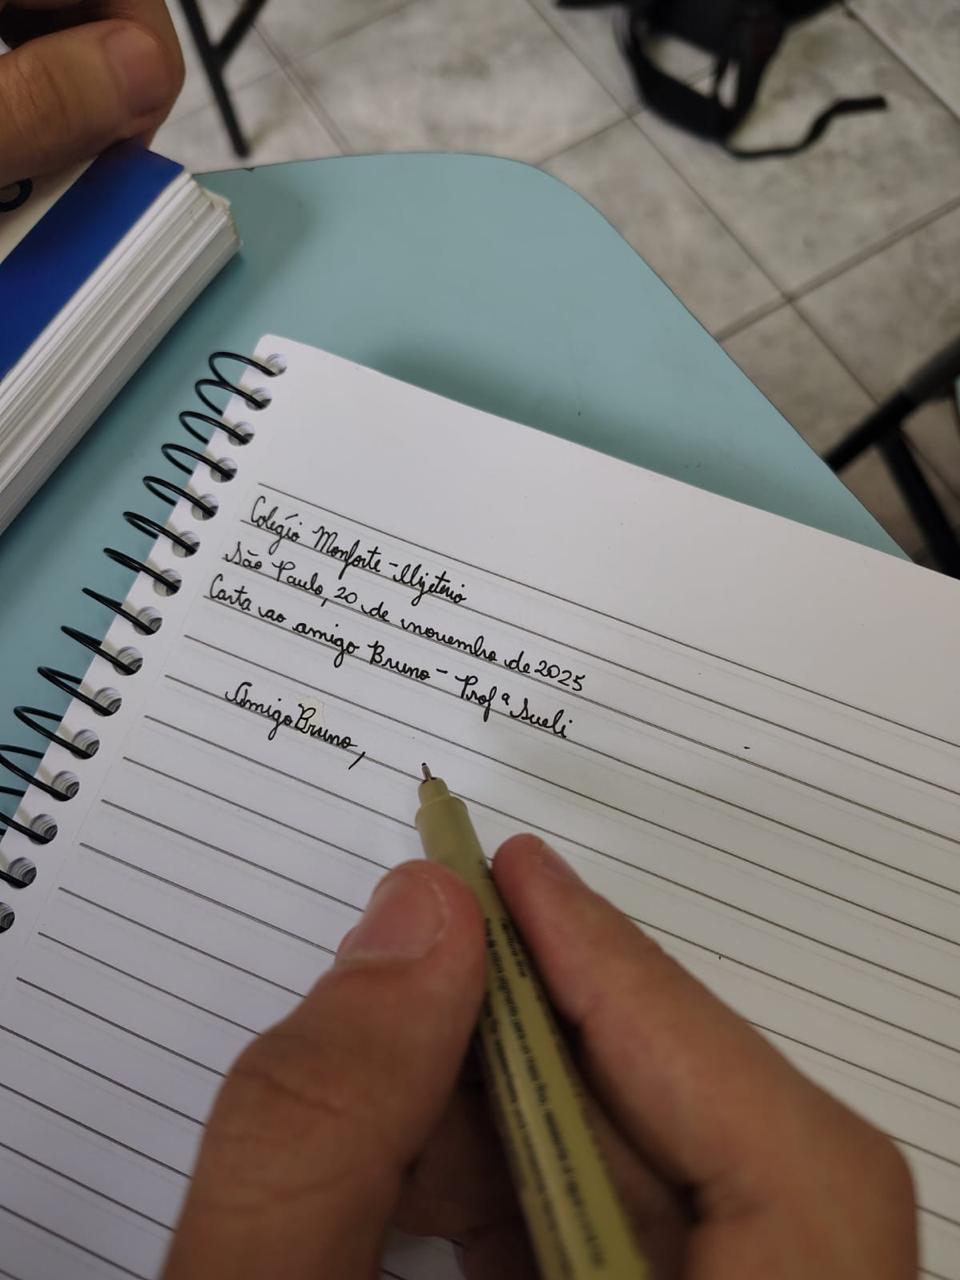 Colégio Monforte -
São Paulo, 20 de novembro de 2025
Carta ao amigo Bruno - Profª Sueli
Amigo Bruno,